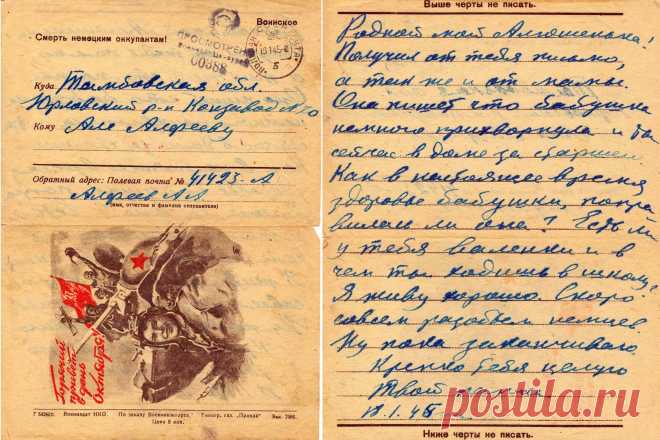 Воинское
Смерть немецким оккупантам!
ПРОСМОТРЕНО
00986
Куда Тамбовская обл.
Юрловский р-н
Кому Але Алфееву
Обратный адрес: Полевая почта № 41423-А
Алфеев А.А.
(имя, отчество и фамилия отправителя)
Горячий
привет
в день
Октября!
Воениздат НКО. По заказу Военкнижторга. Типогр. газ. „Правда“
Цена 5 коп.
Выше черты не писать.
Родной мой Алюшенька!
Получил от тебя письмо,
а так же и от мамы.
Она пишет что бабушка
немного прихворнула и ты
сейчас в доме за старшего.
Как в настоящее время
здоровье бабушки, попра
вилась ли она? Есть ли
у тебя валенки и в
чем ты ходишь в школу?
Я живу хорошо. Скоро
совсем разобьем немцев.
Ну пока заканчиваю.
Крепко тебя целую
Твой
1.45
Ниже черты не писать.
postila.ru